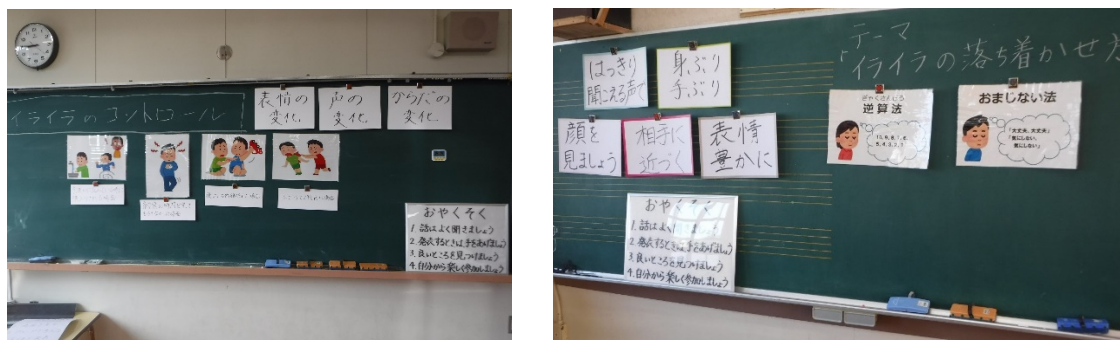 イライラのコントロール
表情の
変化
声の
変化
からだの
変化
おやくそく
1. 話はよく聞きましょう
2. 発表するときは、手をあげましょう
3. 良いところを見つけましょう
4. 自分から楽しく参加しましょう
テーマ
「イライラの落ち着かせ方
はっきり
聞こえる声で
身ぶり
手ぶり
顔を
見ましょう
相手に
近づく
表情
豊かに
ぎゃくさんほう
逆算法
おまじない法
「大丈夫、大丈夫」
「気にしない、
気にしない」
おやくそく
1. 話はよく聞きましょう
2. 発表するときは、手をあげましょう
3. 良いところを見つけましょう
4. 自分から楽しく参加しましょう